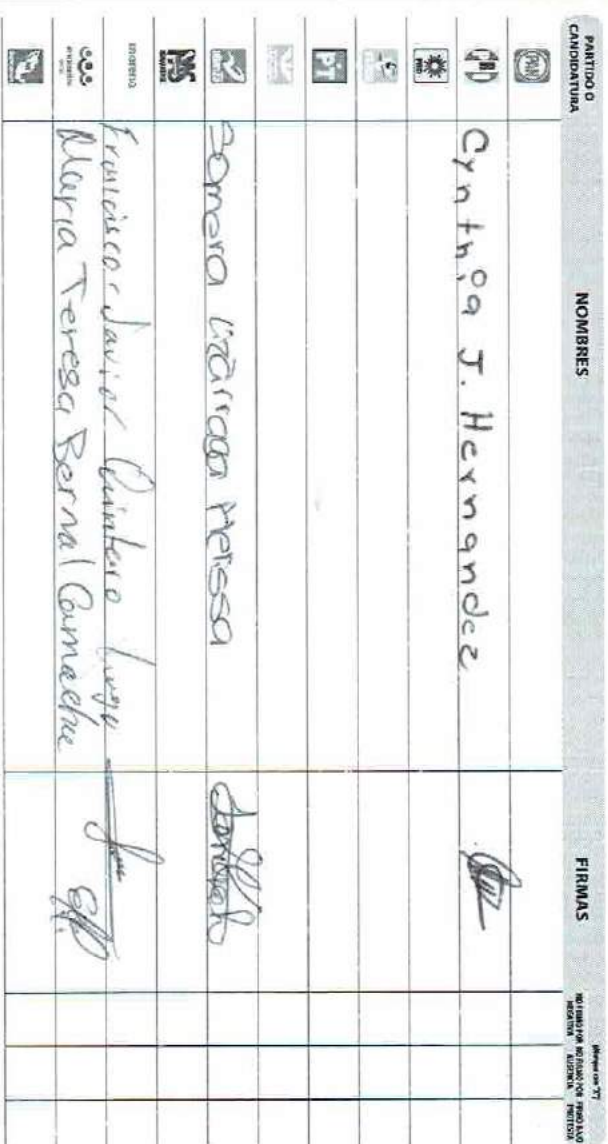 PARTIDO O CANDIDATURA
NOMBRES
FIRMAS
(Marque con "X")
NO FIRMÓ POR NEGATIVA
NO FIRMÓ POR AUSENCIA
FIRMÓ BAJO PROTESTA
PAN
PRI
Cynthia J. Hernandez
PRD
PT
Somera Lizárraga Melissa
PAS
morena
Francisco Javier Quintero Lugo
Maria Teresa Bernal Camacho